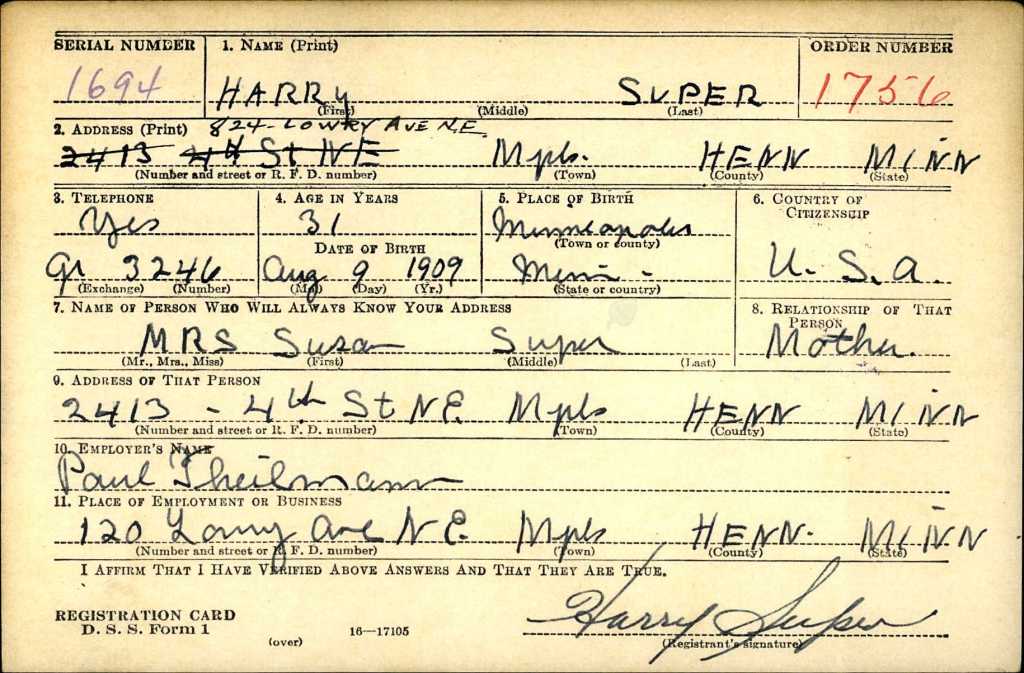 SERIAL NUMBER 1. NAME (Print) ORDER NUMBER
1694 HARRY SUPER 1756
(First) (Middle) (Last)
2. ADDRESS (Print) 824-LOWRY AVE N.E.
2413 4th St NE Mpls. HENN MINN
(Number and street or R. F. D. number) (Town) (County) (State)
3. TELEPHONE 4. AGE IN YEARS 5. PLACE OF BIRTH 6. COUNTRY OF
CITIZENSHIP
Yes 31 Minneapolis
(Town or county)
DATE OF BIRTH
Gr 3246 Aug 9 1909 Minn - U. S. A.
(Exchange) (Number) (Mo.) (Day) (Yr.) (State or country)
7. NAME OF PERSON WHO WILL ALWAYS KNOW YOUR ADDRESS 8. RELATIONSHIP OF THAT
PERSON
MRS Susan Super Mother.
(Mr., Mrs., Miss) (First) (Middle) (Last)
9. ADDRESS OF THAT PERSON
2413 - 4th St N.E. Mpls HENN MINN
(Number and street or R. F. D. number) (Town) (County) (State)
10. EMPLOYER'S NAME
Paul Theilmann
11. PLACE OF EMPLOYMENT OR BUSINESS
120 Lowry Ave N E. Mpls HENN. MINN
(Number and street or R. F. D. number) (Town) (County) (State)
I AFFIRM THAT I HAVE VERIFIED ABOVE ANSWERS AND THAT THEY ARE TRUE.
REGISTRATION CARD
D. S. S. Form 1
(over) 16—17105 Harry Super
(Registrant's signature)